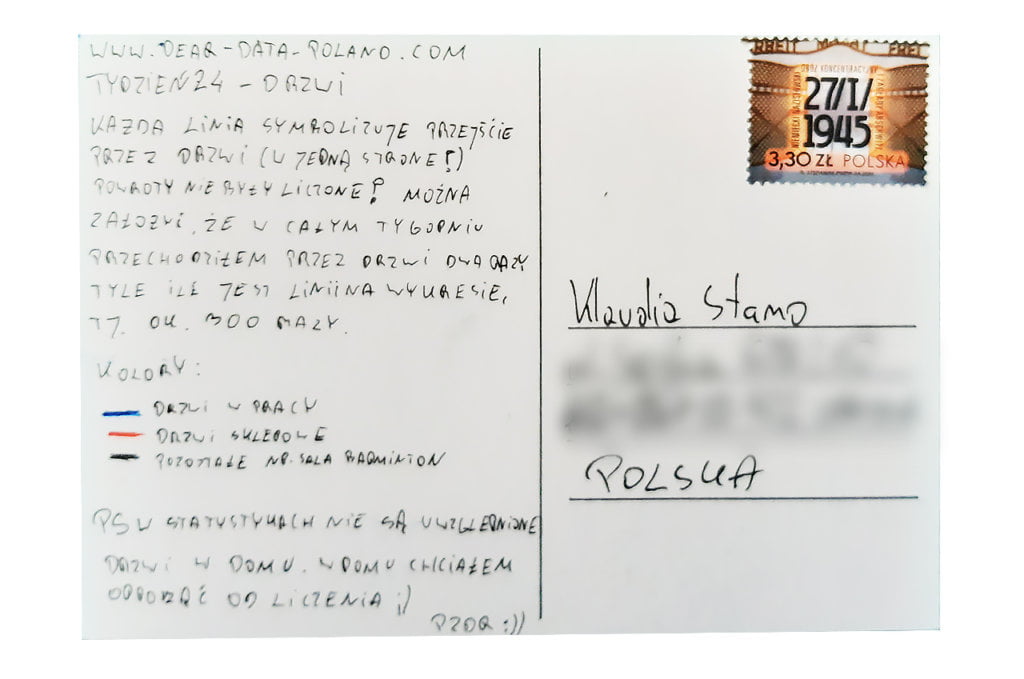 WWW.DEAR-DATA-POLAND.COM
TYDZIEŃ 24 - DRZWI
KAŻDA LINIA SYMBOLIZUJE PRZEJŚCIE
PRZEZ DRZWI (W JEDNĄ STRONĘ!)
POWROTY NIE BYŁY LICZONE! MOŻNA
ZAŁOŻYĆ, ŻE W CAŁYM TYGODNIU
PRZECHODZIŁEM PRZEZ DRZWI DWA RAZY
TYLE ILE JEST LINII NA WYKRESIE,
TJ. OK. 300 RAZY.
KOLORY:
DRZWI W PRACY
DRZWI SKLEPOWE
POZOSTAŁE NP. SALA BADMINTON
PS W STATYSTYKACH NIE SĄ UWZGLĘDNIONE
DRZWI W DOMU. W DOMU CHCIAŁEM
ODPOCZĄĆ OD LICZENIA ;)
PZDR :))
27/I/
1945
3,30 ZŁ POLSKA
Klaudia Stamo
POLSKA